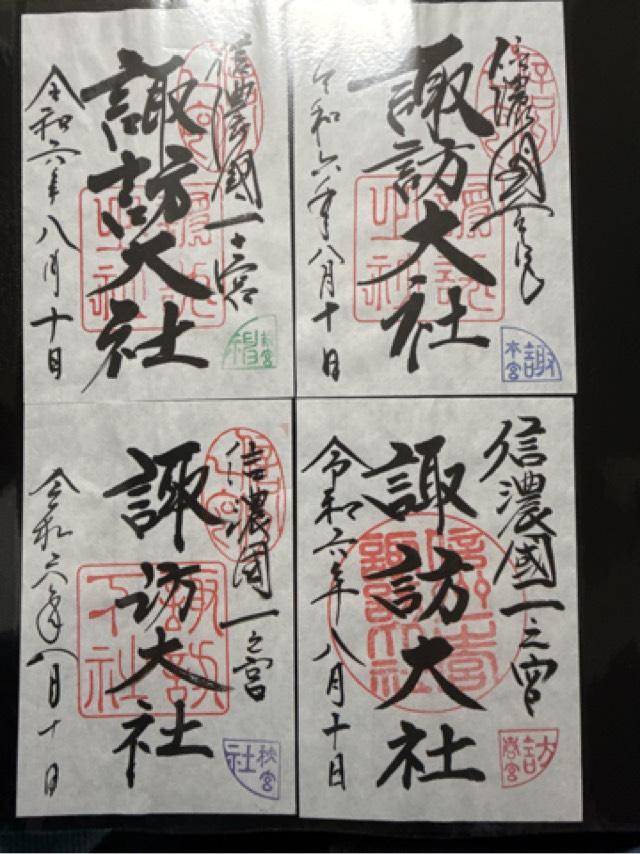 信濃國一之宮
諏訪大社
令和六年八月十日
諏訪
本宮
信濃國一之宮
諏訪大社
令和六年八月十日
前宮
信濃國一之宮
諏訪大社
令和六年八月十日
訪
春宮
信濃國一之宮
諏訪大社
令和六年八月十日
諏訪
下社
秋宮
社